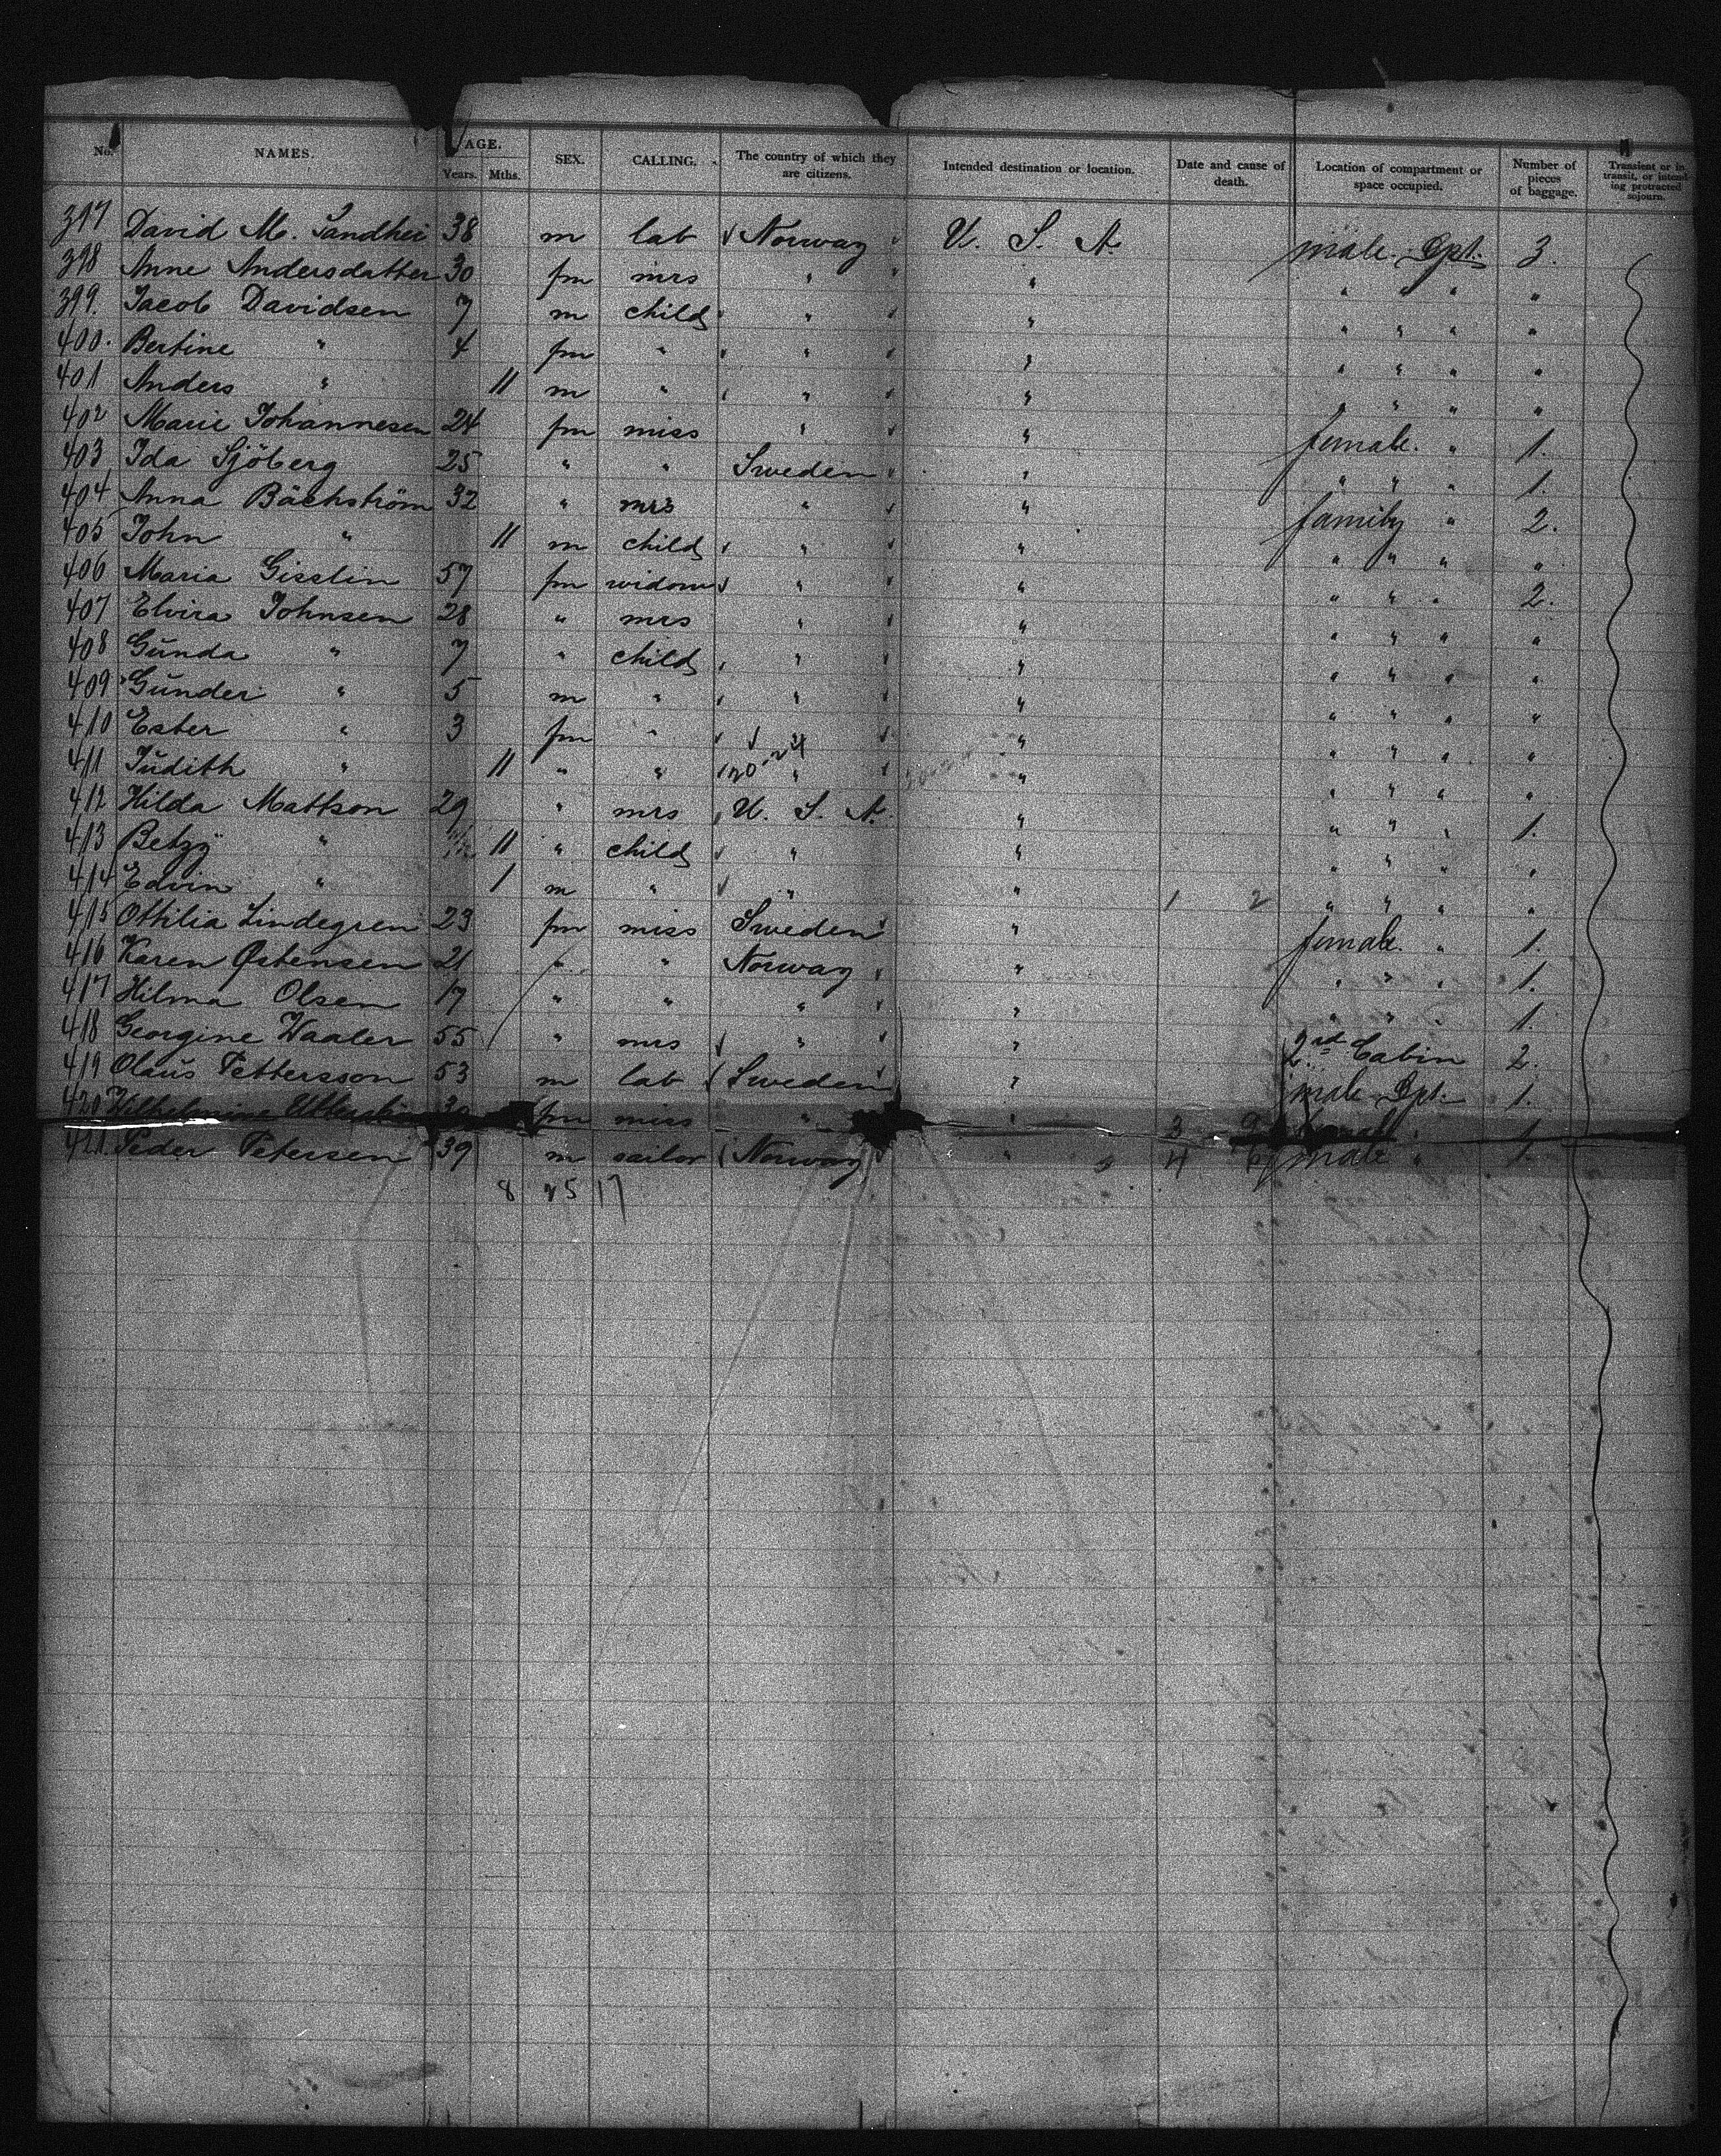 No. NAMES. AGE. Years. Mths. SEX. CALLING. The country of which they are citizens. Intended destination or location. Date and cause of death. Location of compartment or space occupied. Number of pieces of baggage. Transient or in transit, or intending protracted sojourn.
397 David M. Sandhei 38 m lab Norway U. S. A. male Dpt. 3.
398 Anne Andersdatter 30 fm mrs " " " " " "
399. Jacob Davidsen 7 m child " " " " " "
400. Bertine " 4 fm " " " " " " "
401 Anders " 11 m " " " " " " "
402 Marie Johannesen 24 fm miss " " female. " 1.
403 Ida Sjöberg 25 " " Sweden " " " " 1.
404 Anna Bäckström 32 " mrs " " family " 2.
405 John " 11 m child " " " " " "
406 Maria Gisslin 57 fm widow " " " " " 2.
407 Elvira Johnsen 28 " mrs " " " " " "
408 Gunda " 7 " child " " " " " "
409 Gunder " 5 m " " " " " " "
410 Ester " 3 fm " " " " " " "
411 Judith " 11 " " " 20-24 " " " " "
412 Hilda Mattson 29 " mrs U. S. A. " " " " 1.
413 Betzy " 11 " child " " " " " "
414 Edvin " 1 m " " " 1 2 " " " "
415 Ottilia Lindegren 23 fm miss Sweden " female. " 1.
416 Karen Østensen 21 " " Norway " " " " 1.
417 Hilma Olsen 17 " " " " " " " 1.
418 Georgine Waaler 55 " mrs " " 2rd Cabin 2.
419 Olaus Pettersson 53 m lab Sweden " male Dpt. 1.
420 Wilhelmine 30 fm miss " " 3 9 female " 1
421. Peder Petersen 39 m sailor Norway " " 4 6 male " 1.
8 25 17